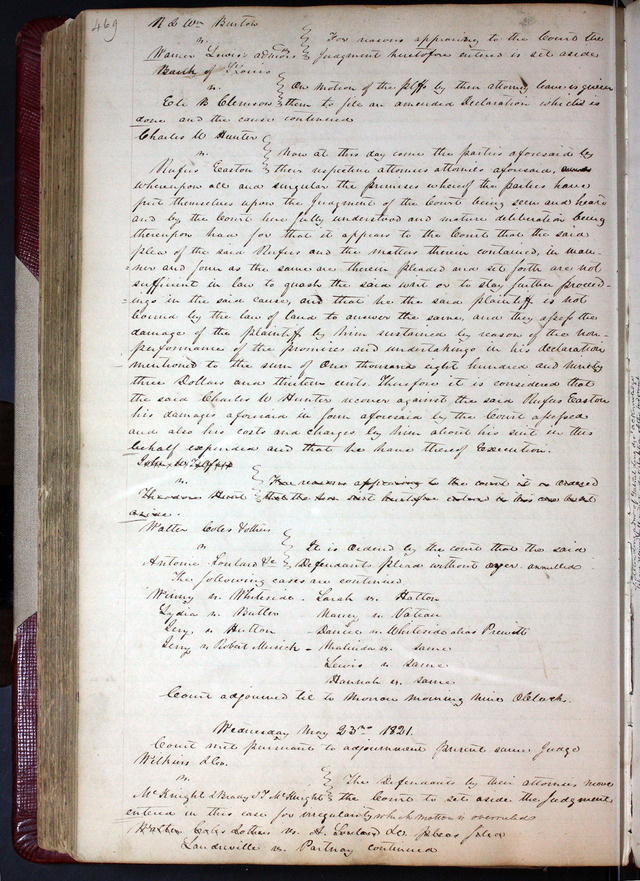 469
N & Wm Burton
vs. } For reasons appearing to the Court the
Warner Lewis' admors } Judgment heretofore entered is set aside
Bank of St Louis
vs. } On motion of the plff by their attorney leave is given
Eli B Clemson } them to file an amended Declaration which is
done and the cause continued
Charles W Hunter
vs. } Now at this day come the parties aforesaid by
Rufus Easton } their respective attornies aforesaid,
whereupon all and singular the premises whereof the parties have
put themselves upon the Judgment of the Court being seen and heard
and by the Court here fully understood and mature deliberation being
thereupon had for that it appears to the Court that the said
plea of the said Rufus and the matters therein contained, in man=
=ner and form as the same are therein pleaded and set forth are not
sufficient in law to quash the said writ or to stay further proceed-
=ings in the said cause, and that he the said plaintiff is not
bound by the law of land to answer the same, and they assess the
damages of the plaintiff by him sustained by reason of the non-
-performance of the promises and undertakings in his declaration
mentioned to the sum of One thousand eight hundred and ninety
three Dollars and thirteen cents. Therefore it is considered that
the said Charles W Hunter recover against the said Rufus Easton
his damages aforesaid in form aforesaid by the Court assessed
and also his costs and charges by him about his suit in this
behalf expended and that he have thereof Execution.
vs. } For reasons appearing to the court it is ordered
Theodore Hunt } that the
Walter Coles & others
vs } It is ordered by the court that the said
Antoine Soulard &c } Defendants plead without oyer annulled
The following cases are continued
Winny vs. Whitesides - Sarah vs. Hatton
Lydia vs. Butler Nancy vs.
Jerry vs Hutton - Daniel vs Whitesides alias Prewitt
Jerry vs Robert Musick - Malinda vs. same
Lewis vs. same
Hannah vs. same
Court adjourned til to Morrow morning nine OClock.
Wednesday May 23rd 1821.
Court met pursuant to adjournment present same Judge
Wilkins & Co.
vs. } The Defendants by their attornies move
McKnight & Brady & T McKnight } the Court to set aside the Judgment
entered in this case for irregularity which motion is overruled
Walter Coles & others vs. A. Soulard &c pleas filed
Landreville vs. Partnay continued